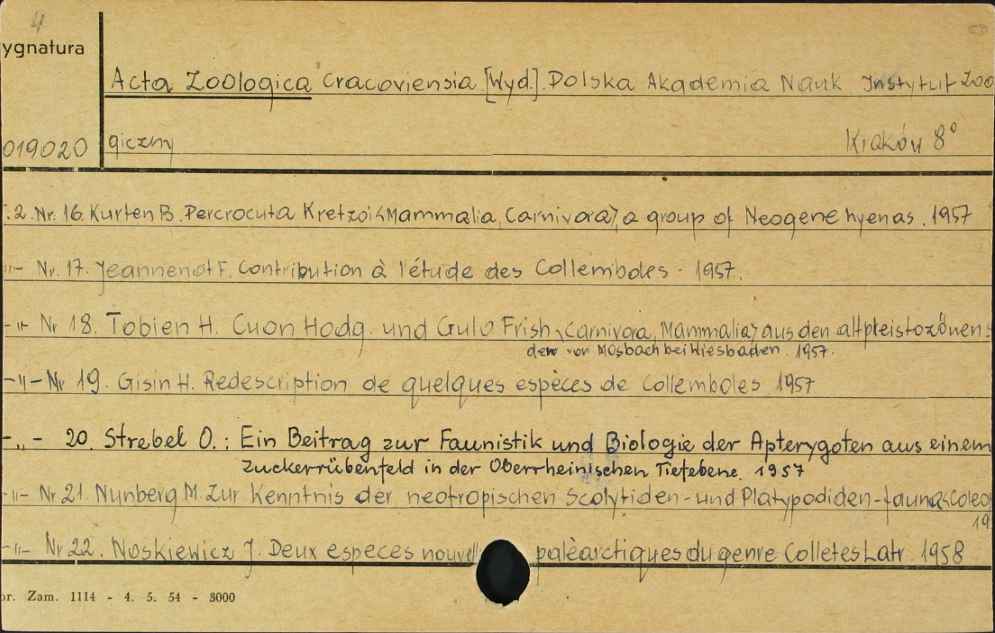 4
ygnatura
Acta Zoologica Cracoviensia [Wyd.] Polska Akademia Nauk Instytut Zoo
019020 giczny Kraków 8°
.2. Nr. 16. Kurten B. Percrocuta Kretzoi <Mammalia, Carnivora>, a group of Neogene hyenas. 1957
-"- Nr. 17. Jeannenot F. Contribution à l'étude des Collemboles - 1957.
-"- Nr 18. Tobien H. Cuon Hodg. und Gulo Frish <Carnivora, Mammalia> aus den altpleistozänen
den von Mosbach bei Wiesbaden. 1957.
-"- Nr 19. Gisin H. Redescription de quelques espèces de Collemboles 1957
-"- 20. Strebel O.: Ein Beitrag zur Faunistik und Biologie der Apterygoten aus einem
Zuckerrübenfeld in der Oberrheinischen Tiefebene. 1957
-"- Nr 21. Nunberg M. Zur Kenntnis der neotropischen Scolytiden- und Platypodiden-fauna <Coleo
19
-"- Nr 22. Noskiewicz J. Deux especes nouvell paléarctiques du genre Colletes Latr. 1958
or. Zam. 1114 - 4. 5. 54 - 3000